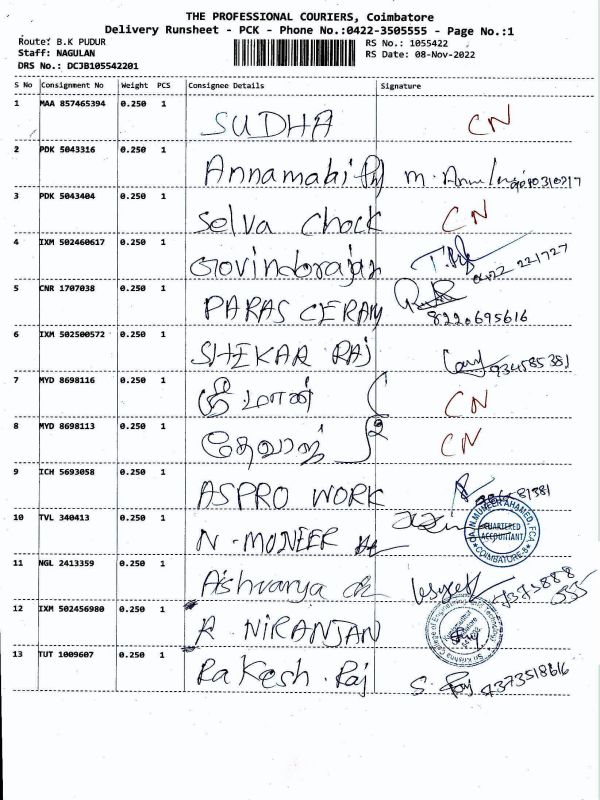 THE PROFESSIONAL COURIERS, Coimbatore
Delivery Runsheet - PCK - Phone No.:0422-3505555 - Page No.:1
Route: B.K PUDUR
RS No.: 1055422
Staff: NAGULAN
RS Date: 08-Nov-2022
DRS No.: DCJB105542201
S No Consignment No Weight PCS Consignee Details Signature
1 MAA 857465394 0.250 1 SUDHA CN
2 PDK 5043316 0.250 1 Annamalai
3 PDK 5043404 0.250 1 Selva Chock CN
4 IXM 502460617 0.250 1 Govindorajan 0422 221727
5 CNR 1707038 0.250 1 PARAS CERAM 8220695616
6 IXM 502500572 0.250 1 SHEKAR RAJ 934585381
7 MYD 8698116 0.250 1 ஸ்ரீ மான் CN
8 MYD 8698113 0.250 1 CN
9 ICH 5693058 0.250 1 ASPRO WORK
10 TVL 340413 0.250 1 N-MUNEER
CA.N.MUNEER AHAMED, FCA
CHARTERED
ACCOUNTANT
COIMBATORE-8
11 NGL 2413359 0.250 1 Aishvarya
12 IXM 502456980 0.250 1 R. NIRANJAN
Sri Krishna College of Engineering and Technology
13 TUT 1009607 0.250 1 Rakesh. Raj S. Raj 9373518616